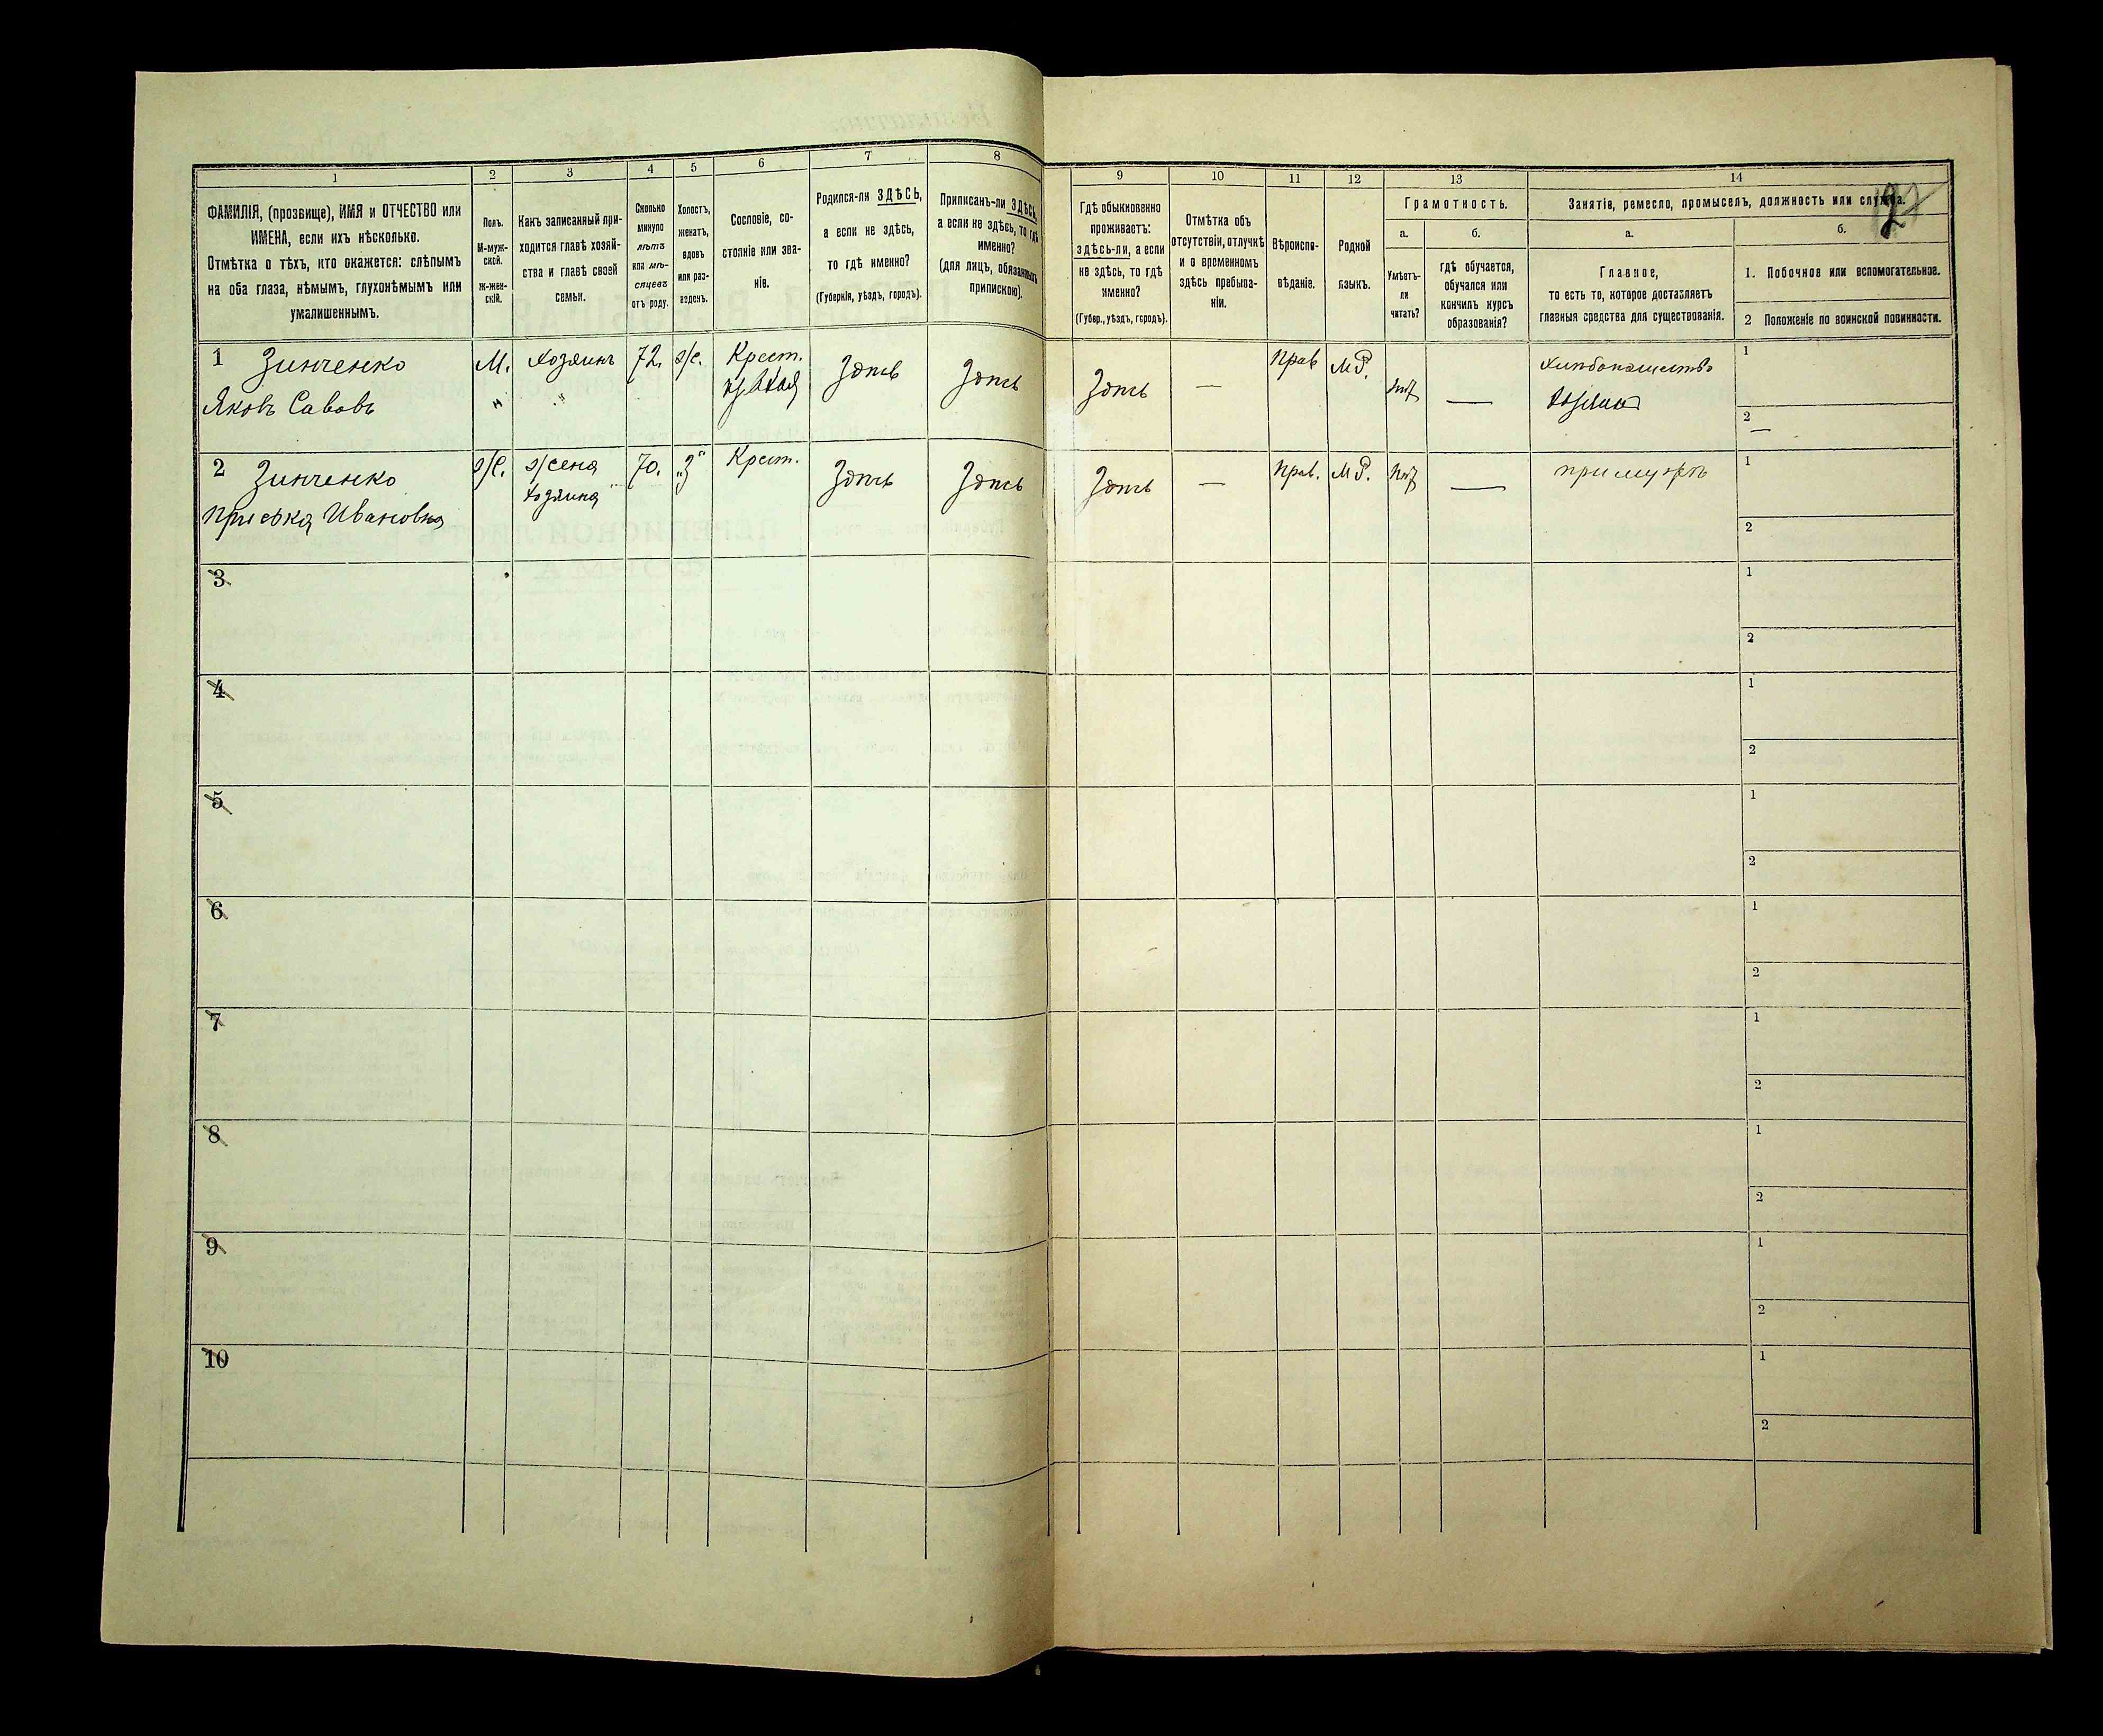 1
2
3
4
5
6
7
8
ФАМИЛІЯ, (прозвище), ИМЯ и ОТЧЕСТВО или
ИМЕНА, если ихъ нѣсколько.
Отмѣтка о тѣхъ, кто окажется: слѣпымъ
на оба глаза, нѣмымъ, глухонѣмымъ или
умалишеннымъ.
Полъ.
М-муж-
ской.
Ж-жен-
скій.
Какъ записанный при-
ходится главѣ хозяй-
ства и главѣ своей
семьи.
Сколько
минуло
лѣтъ
или мѣ-
сяцевъ
отъ роду.
Холостъ,
женатъ,
вдовъ
или раз-
веденъ.
Сословіе, со-
стояніе или зва-
ніе.
Родился-ли ЗДѢСЬ,
а если не здѣсь,
то гдѣ именно?
(Губернія, уѣздъ, городъ).
Приписанъ-ли ЗДѢСЬ,
а если не здѣсь, то гдѣ
именно?
(для лицъ, обязанныхъ
припискою).
9
10
11
12
13
14
Гдѣ обыкновенно
проживаетъ:
здѣсь-ли, а если
не здѣсь, то гдѣ
именно?
(Губер., уѣздъ, городъ).
Отмѣтка объ
отсутствіи, отлучкѣ
и о временномъ
здѣсь пребыва-
ніи.
Вѣроиспо-
вѣданіе.
Родной
языкъ.
Грамотность.
а.
Умѣетъ-
ли
читать?
б.
гдѣ обучается,
обучался или
кончилъ курсъ
образованія?
Занятія, ремесло, промыселъ, должность или служба.
а.
Главное,
то есть то, которое доставляетъ
главныя средства для существованія.
б.
1. Побочное или вспомогательное.
2 Положеніе по воинской повинности.
1 Зинченко М. Хозяинъ 72. ж. Крест. Здѣсь Здѣсь Здѣсь — Прав М.Р. нѣт — Хлѣбопашество 1
Яковъ Савовъ " " Хозяинъ 2 —
2 Зинченко ж. жена 70. „З" Крест. Здѣсь Здѣсь Здѣсь — Прав. М.Р. нѣт — при мужѣ 1
Приська Ивановна хозяина 2
3 1
2
4 1
2
5 1
2
6 1
2
7 1
2
8 1
2
9 1
2
10 1
2